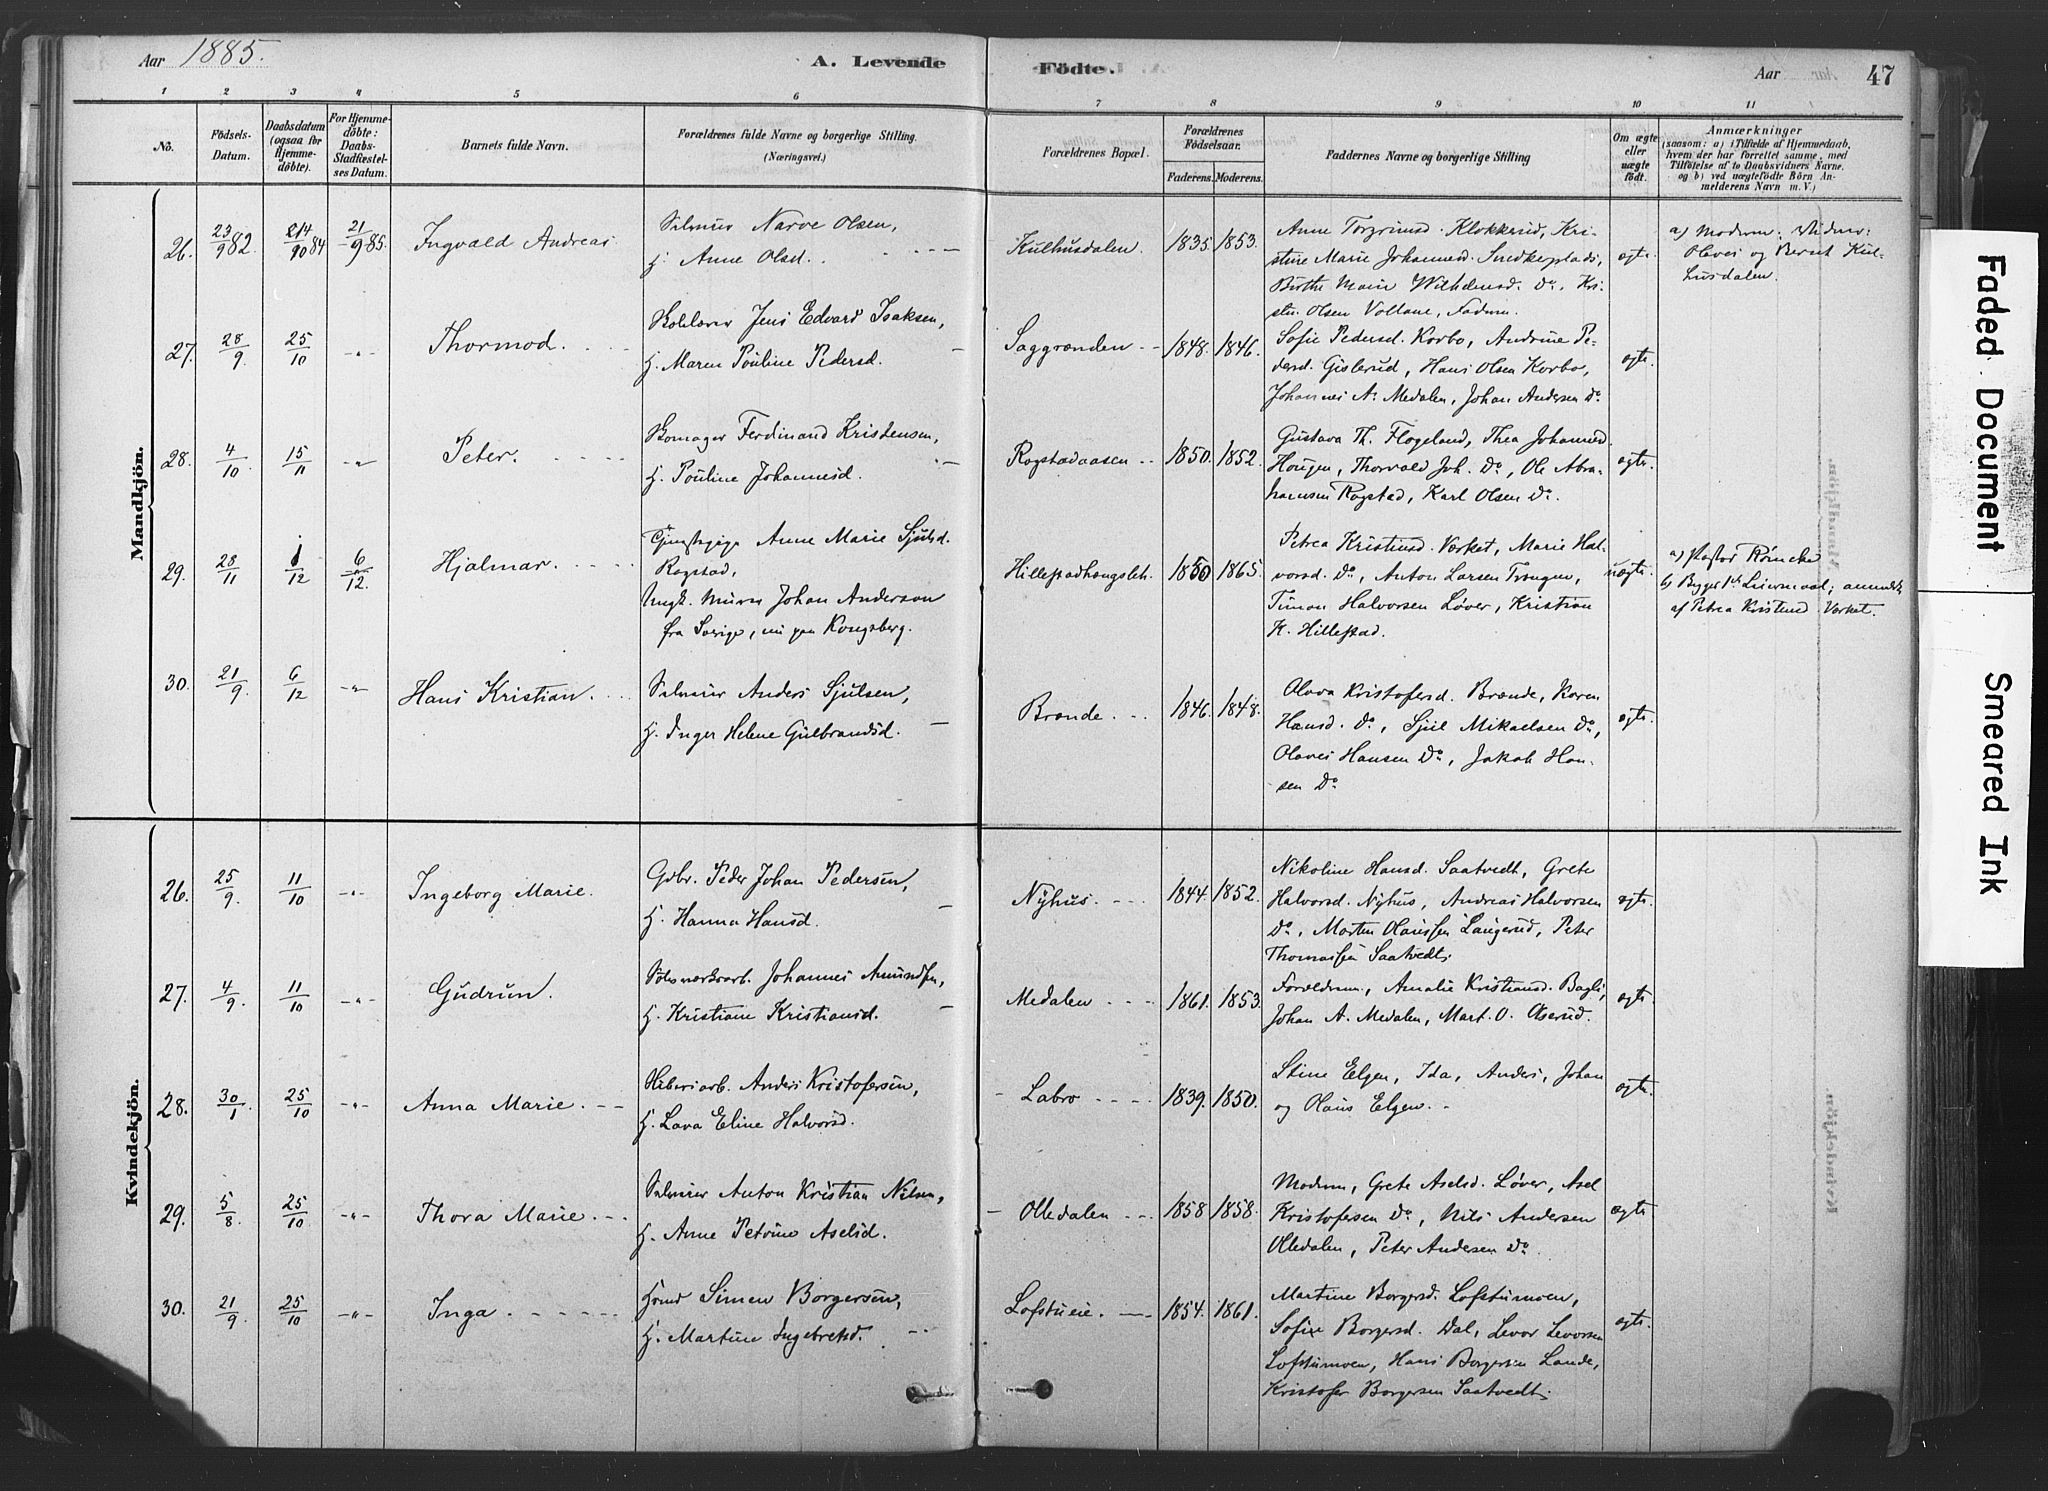 Aar 1885.
A. Levende
Födte.
Aar
47
1 2 3 4 5 6 7 8 9 10 11
No.
Födsels-
Datum.
Daabsdatum
(ogsaa for
Hjemme-
döbte).
For Hjemme-
döbte:
Daabs-
Stadfæstel-
ses Datum.
Barnets fulde Navn.
Forældrenes fulde Navne og borgerlige Stilling.
(Næringsvei.)
Forældrenes Bopæl.
Forældrenes
Födselsaar.
Faderens.
Moderens.
Faddernes Navne og borgerlige Stilling
Om ægte
eller
uægte
födt.
Anmærkninger
(saasom: a) i Tilfælde af Hjemmedaab,
hvem der har forrettet samme, med
Tilföielse af to Daabsvidners Navne,
og b) ved uægtefödte Börn An-
melderens Navn m. V.)
Mandkjön.
26. 23/9 82 14/10 84 21/9 85. Ingvald Andreas
Narve Olsen,
H. Anne Olsd.
Kulhusdalen. 1835. 1853.
Anne Torgrimsd. Klokkerud, Kri-
stine Marie Johannesd. Snedkerplads,
Birthe Marie Wilhelmsd. Do, Kri-
Olsen Vollane,
ægte.
a) Moderen. Vidner:
Olaves og Bernt Kul-
husdalen.
27. 28/9 25/10 -"- Thormod.
Jens Edvard Isaksen,
H. Maren Pouline Pedersd.
Saggrænden 1848. 1846.
Sofie Pedersd. Korbo, Andrine Pe-
dersd. Gislerud, Hans Olsen Korbo,
Johannes A. Medalen, Johan Andersen Do
ægte.
28. 4/10 15/11 -"- Peter.
Skomager Ferdinand Kristensen,
H. Pouline Johannesd.
Rogstadaasen 1850. 1852.
Gustava Th. Flogeland, Thea Johannesd.
Hougen, Thorvald Joh. Do, Ole Abra-
hamsen Rogstad, Karl Olsen Do.
ægte.
29. 28/11 1/12 6/12. Hjalmar.
Tjenestepige Anne Marie Sjulsd.
Rogstad,
Ungk. Murer Johan Anderson
fra Sverige, nu paa Kongsberg.
1860 1865.
Petrea Kristensd. Værket, Marie Hal-
vorsd. Do, Anton Larsen
Simon Halvorsen Løver, Kristian
K. Hillestad.
uægte.
a) Pastor Röncke
b) Begges 1ste Leiermaal; anmeldt
af Petrea Kristensd Værket.
30. 21/9 6/12 -"- Hans Kristian.
Anders Sjulsen,
H. Inger Helene Gulbrandsd.
Brænde. 1846. 1848.
Olava Kristofersd. Brænde, Karen
Hansd. Do, Sjul Mikaelsen Do,
Olaves Hansen Do, Jakob Han-
sen Do
ægte.
Kvindekjön.
26. 25/9. 11/10 -"- Ingeborg Marie.
Gbr. Peder Johan Pedersen,
H. Hanna Hansd.
Nyhus. 1844. 1852.
Nikoline Hansd. Saatvedt, Grete
Halvorsd. Nyhus, Andreas Halvorsen
Do, Morten Olaussen Langerud, Peter
Thomassen Saatvedt.
ægte.
27. 4/9. 11/10 -"- Gudrun.
Sølvværksarb. Johannes Amundsen,
H. Kristiane Kristiansd.
Medalen 1861. 1853.
Forældrene, Amalie Kristiansd. Bagli,
Johan A. Medalen, Mart. O. Aserud.
ægte.
28. 30/1. 25/10 -"- Anna Marie.
Anders Kristofersen,
H. Lava Eline Halvorsd.
Labro 1839. 1850.
Stine Elgen, Ida, Anders, Johan
og Olaus Elgen.
ægte.
29. 5/8 25/10 -"- Thora Marie.
Anton Kristian Nilsen,
H. Anne Petrine Axelsd.
Olledalen 1858 1858.
Moderen, Grete Axelsd. Løver, Axel
Kristofersen Do, Nils Andersen
Olledalen, Peter Andersen Do.
ægte
30. 21/9 25/10 -"- Inga
Simen Borgersen,
H. Martine Ingebretsd.
Lofstueie. 1854. 1861.
Martine Borgersd. Lofstumoen,
Sofie Borgersd. Dal, Levor Levorsen
Lofstumoen, Hans Borgersen Lande,
Kristofer Borgersen Saatvedt.
ægte.
Faded Document
Smeared Ink